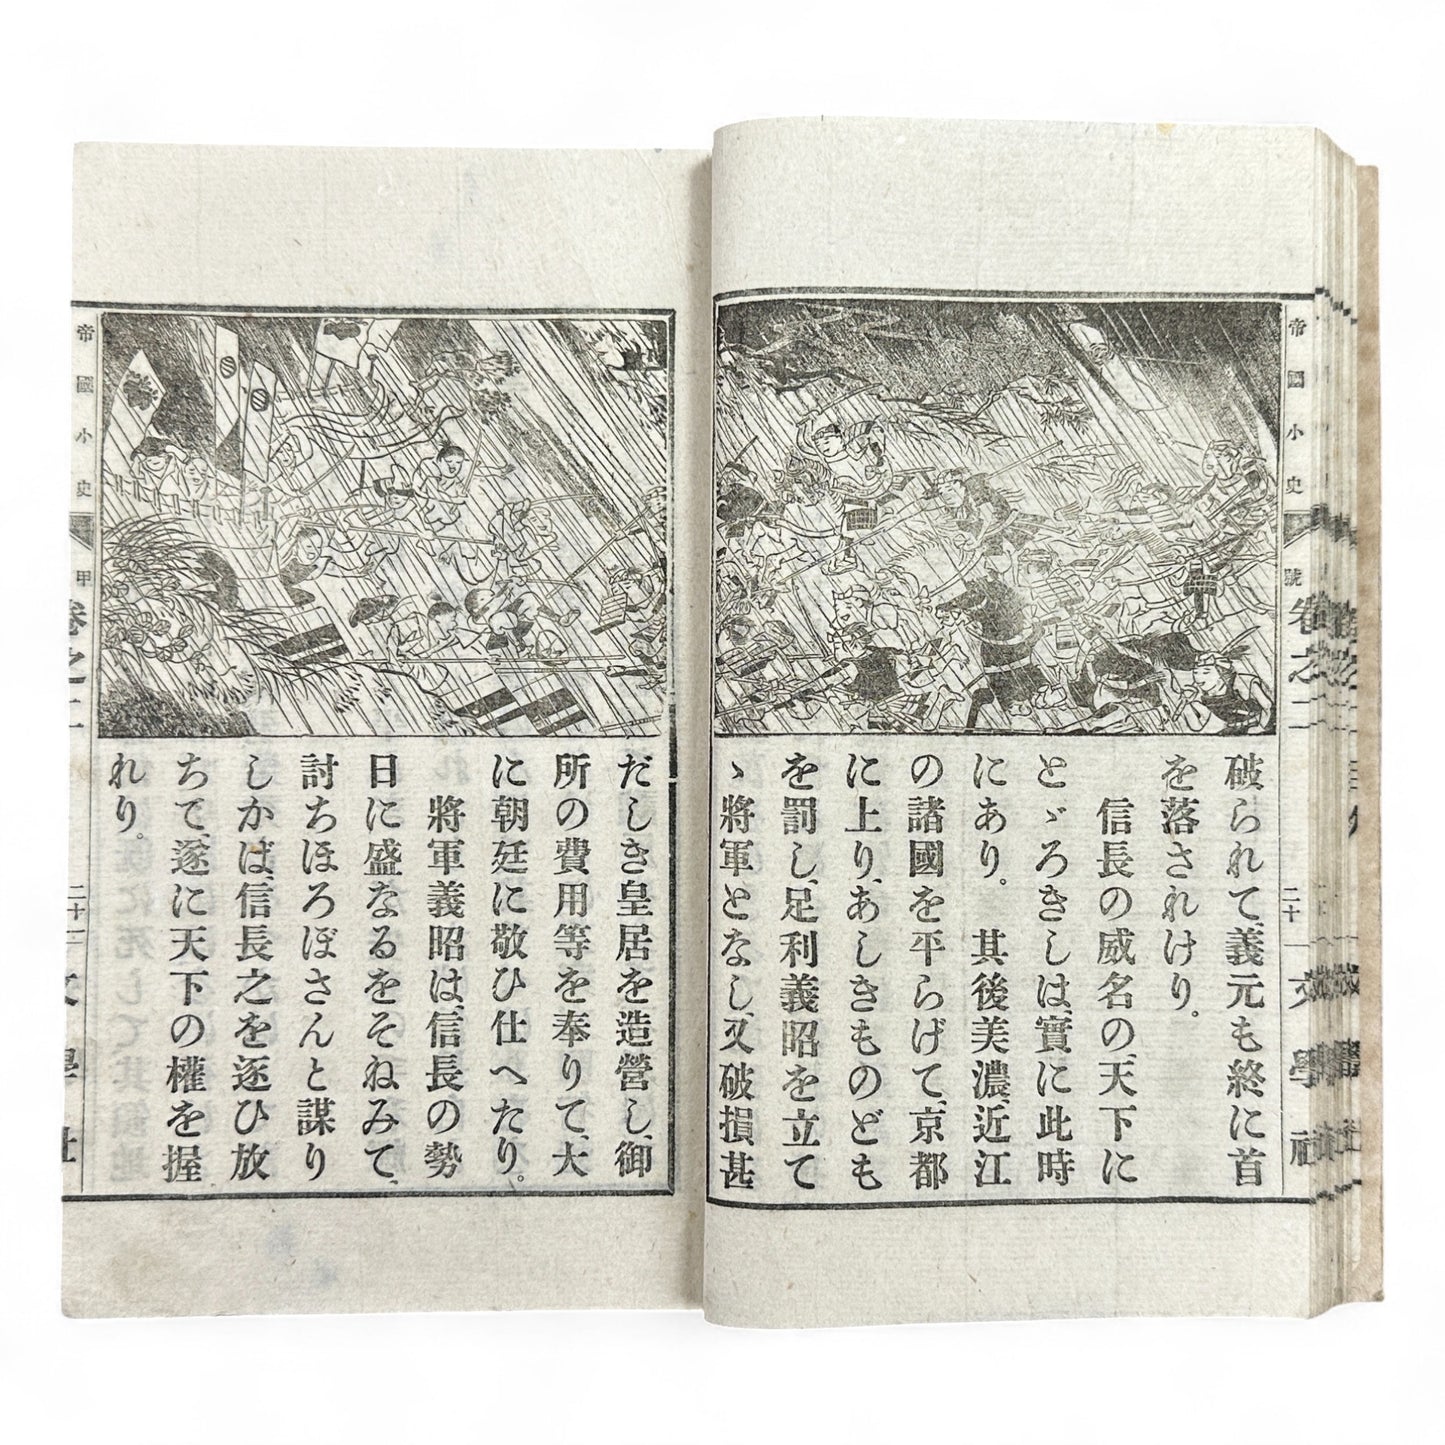 帝國小史
號
卷之二
二十
文學社
破られて、義元も終に首
を落されけり。
信長の威名の、天下に
とゞろきしは、實に此時
にあり。其後美濃、近江
の諸國を平らげて、京都
に上り、あしきものども
を罰し、足利義昭を立て
ゝ將軍となし、又破損甚
だしき皇居を造營し、御
所の費用等を奉りて、大
に朝廷に敬ひ仕へたり。
將軍義昭は、信長の勢
日に盛なるをそねみて、
討ちほろぼさんと謀り
しかば、信長之を逐ひ放
ちて、遂に天下の權を握
れり。
帝國小史
甲
卷之二
二十一
文學社